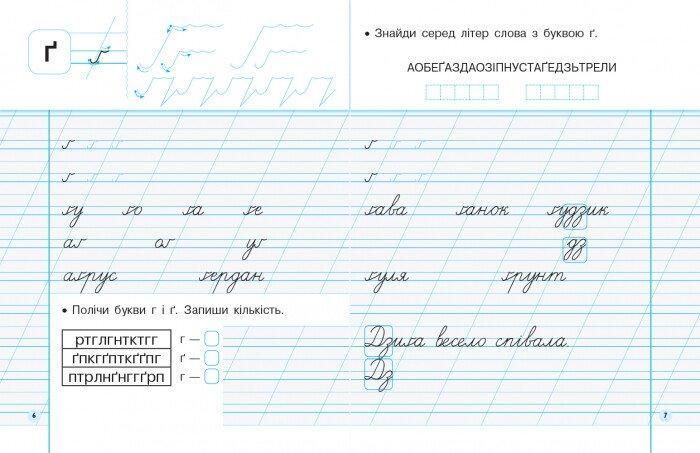 Ґ ґ
ґ ґ ґ
ґ ґ ґ
ґу ґо ґа ґе
аґ оґ уґ
аґрус ґердан
• Полічи букви г і ґ. Запиши кількість.
ртглгнтктгг г —
ґпкгґпткґґпг ґ —
птрлнґнггґрп г —
6
• Знайди серед літер слова з буквою ґ.
АОБЕҐАЗДАОЗІПНУСТАҐЕДЗЬТРЕЛИ
ґ ґ ґ
ґ ґ ґ
ґава ґанок ґудзик
дз
ґуля ґрунт
Дзиґа весело співала.
Дз
7